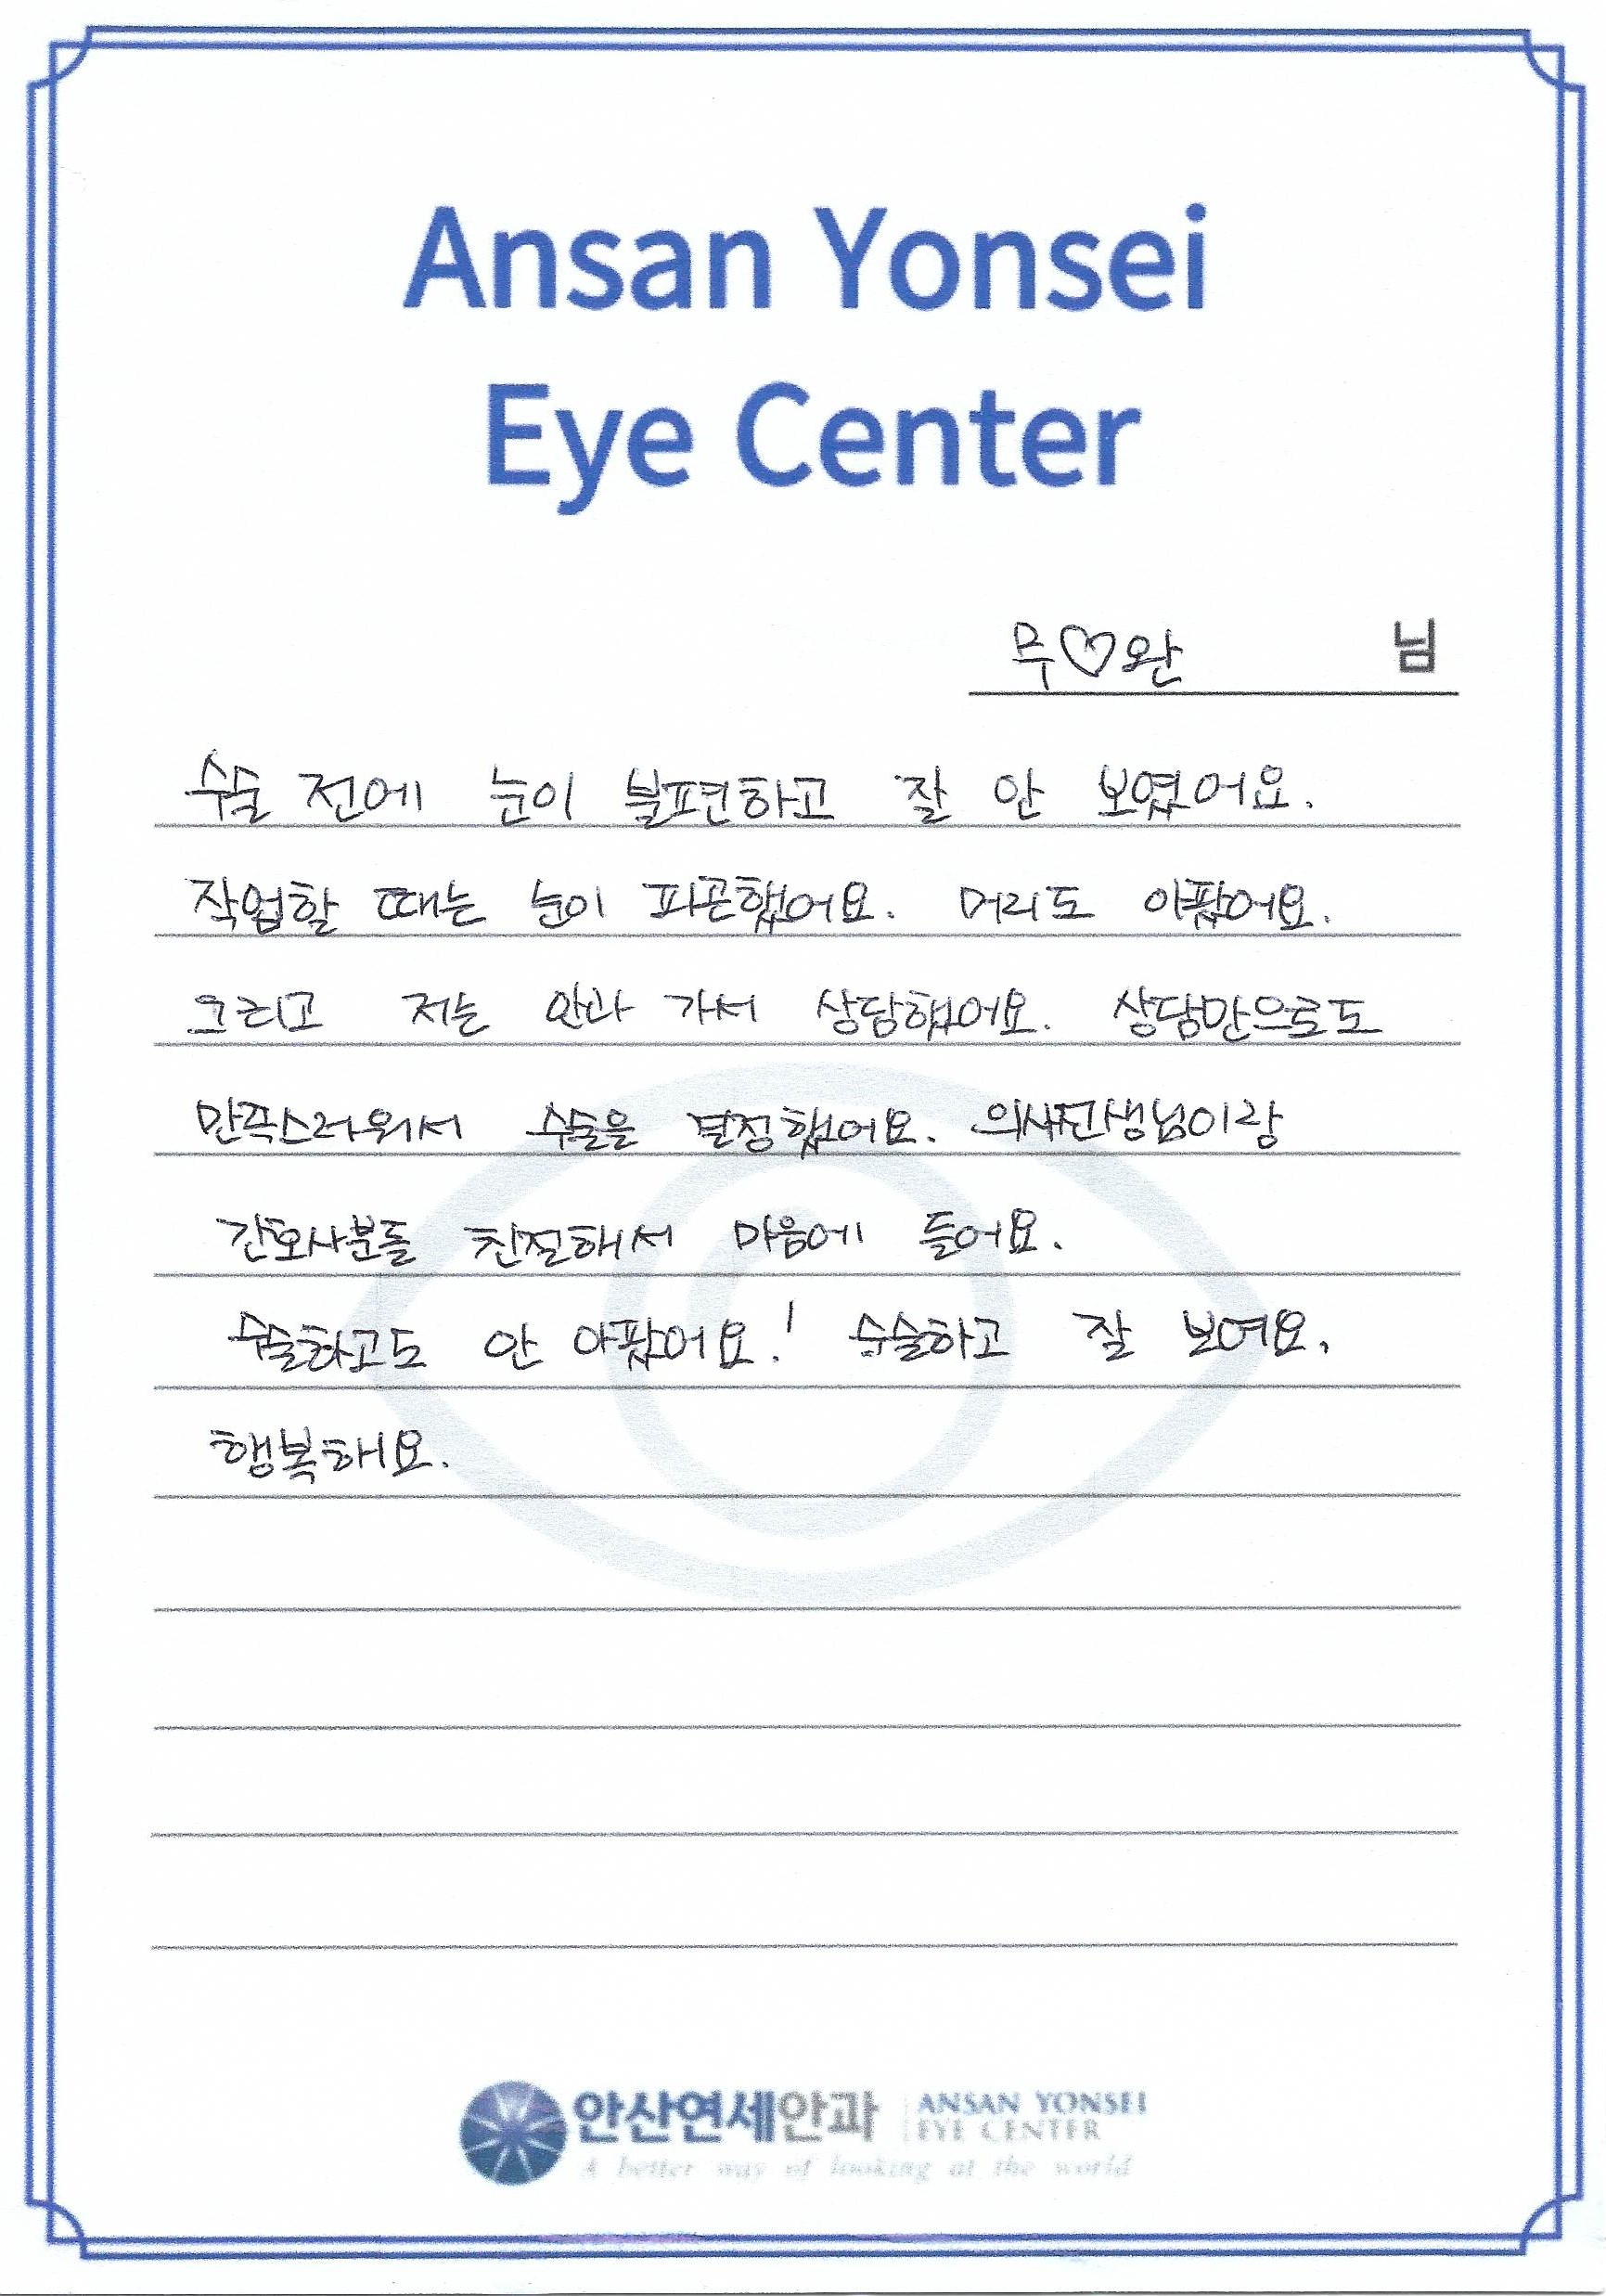 Ansan Yonsei
Eye Center
무♡완 님
수술 전에 눈이 불편하고 잘 안 보였어요.
작업할 때는 눈이 피곤했어요. 머리도 아팠어요.
그리고 저는 안과 가서 상담했어요. 상담만으로도
만족스러워서 수술을 결정했어요. 의사선생님이랑
간호사분들 친절해서 마음에 들어요.
수술하고도 안 아팠어요! 수술하고 잘 보여요.
행복해요.
안산연세안과 ANSAN YONSEI
EYE CENTER
A better way of looking at the world